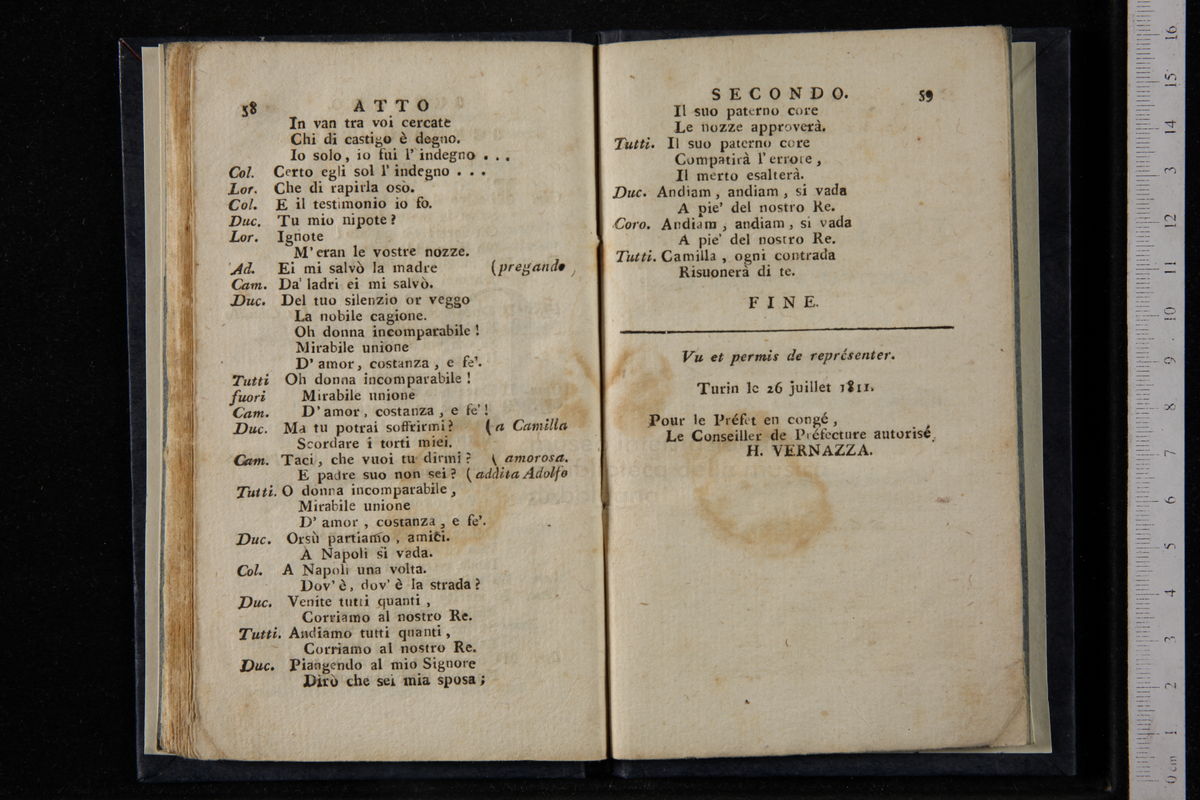 58 ATTO
In van tra voi cercate
Chi di castigo è degno.
Io solo, io fui l' indegno . . .
Col. Certo egli sol l' indegno . . .
Lor. Che di rapirla osò.
Col. E il testimonio io fo.
Duc. Tu mio nipote?
Lor. Ignote
M' eran le vostre nozze.
Ad. Ei mi salvò la madre (pregando)
Cam. Da' ladri ei mi salvò.
Duc. Del tuo silenzio or veggo
La nobile cagione.
Oh donna incomparabile!
Mirabile unione
D' amor, costanza, e fe'.
Tutti Oh donna incomparabile!
fuori Mirabile unione
Cam. D' amor, costanza, e fe'!
Duc. Ma tu potrai soffrirmi? (a Camilla
Scordare i torti miei.
Cam. Taci, che vuoi tu dirmi? ( amorosa.
E padre suo non sei? (addita Adolfo
Tutti. O donna incomparabile,
Mirabile unione
D' amor, costanza, e fe'.
Duc. Orsù partiamo, amici.
A Napoli si vada.
Col. A Napoli una volta.
Dov' è, dov' è la strada?
Duc. Venite tutti quanti,
Corriamo al nostro Re.
Tutti. Andiamo tutti quanti,
Corriamo al nostro Re.
Duc. Piangendo al mio Signore
Dirò che sei mia sposa;
SECONDO. 59
Il suo paterno core
Le nozze approverà.
Tutti. Il suo paterno core
Compatirà l' errore,
Il merto esalterà.
Duc. Andiam, andiam, si vada
A pie' del nostro Re.
Coro. Andiam, andiam, si vada
A pie' del nostro Re.
Tutti. Camilla, ogni contrada
Risuonerà di te.
FINE.
Vu et permis de représenter.
Turin le 26 juillet 1811.
Pour le Préfet en congé,
Le Conseiller de Préfecture autorisé,
H. VERNAZZA.
0 cm 1 2 3 4 5 6 7 8 9 10 11 12 13 14 15 16